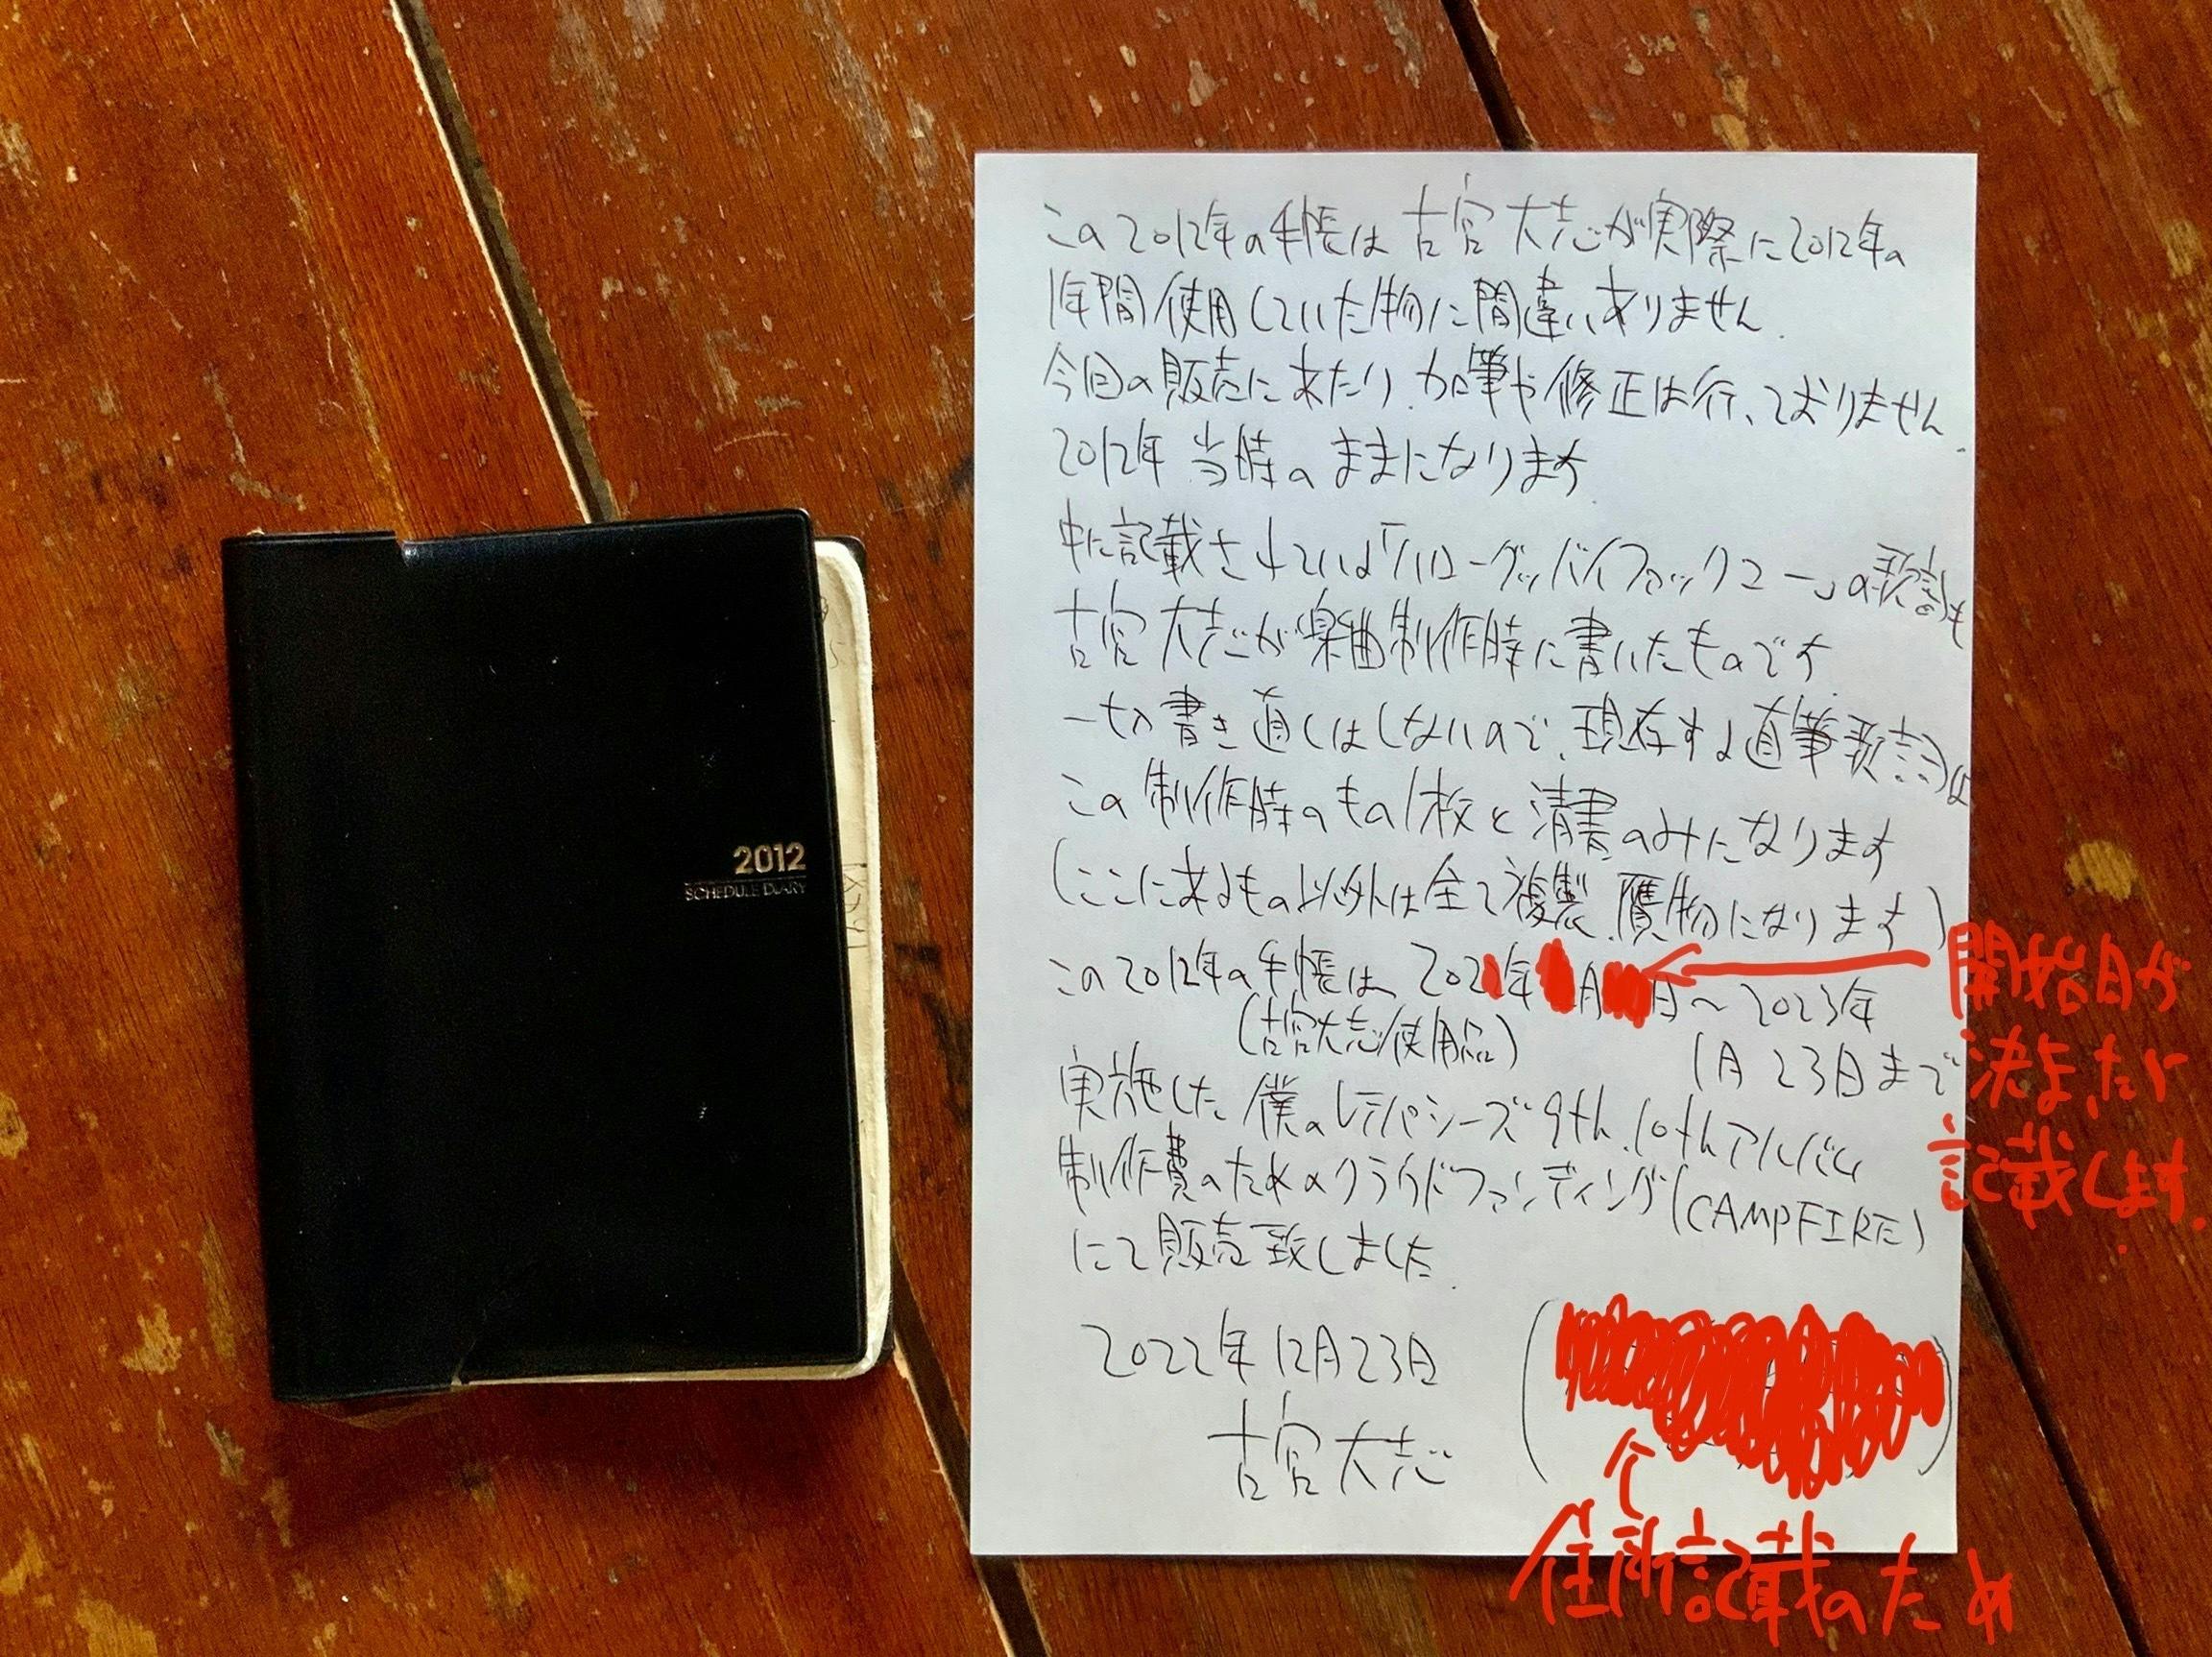 2012
SCHEDULE DIARY
この2012年の手帳は古宮大志が実際に2012年の
1年間使用していた物に間違いありません.
今回の販売にあたり.加筆や修正は行っておりません.
2012年当時のままになります
中に記載されている「ハローグッバイファックユー」の歌詞も
古宮大志が楽曲制作時に書いたものです.
一切書き直しはしないので、現存する直筆歌詞は
この制作時のもの1枚と清書のみになります
(ここにあるもの以外は全て複製.贋物になります)
この2012年の手帳は、202 年 月 日～2023年
(古宮大志使用品)
1月23日まで
実施した僕のレテパシーズ9th.10thアルバム
制作費のためのクラウドファンディング(CAMPFIRE)
にて販売致しました.
2022年12月23日
古宮大志
開始日が
決まったら
記載します.
住所記載のため